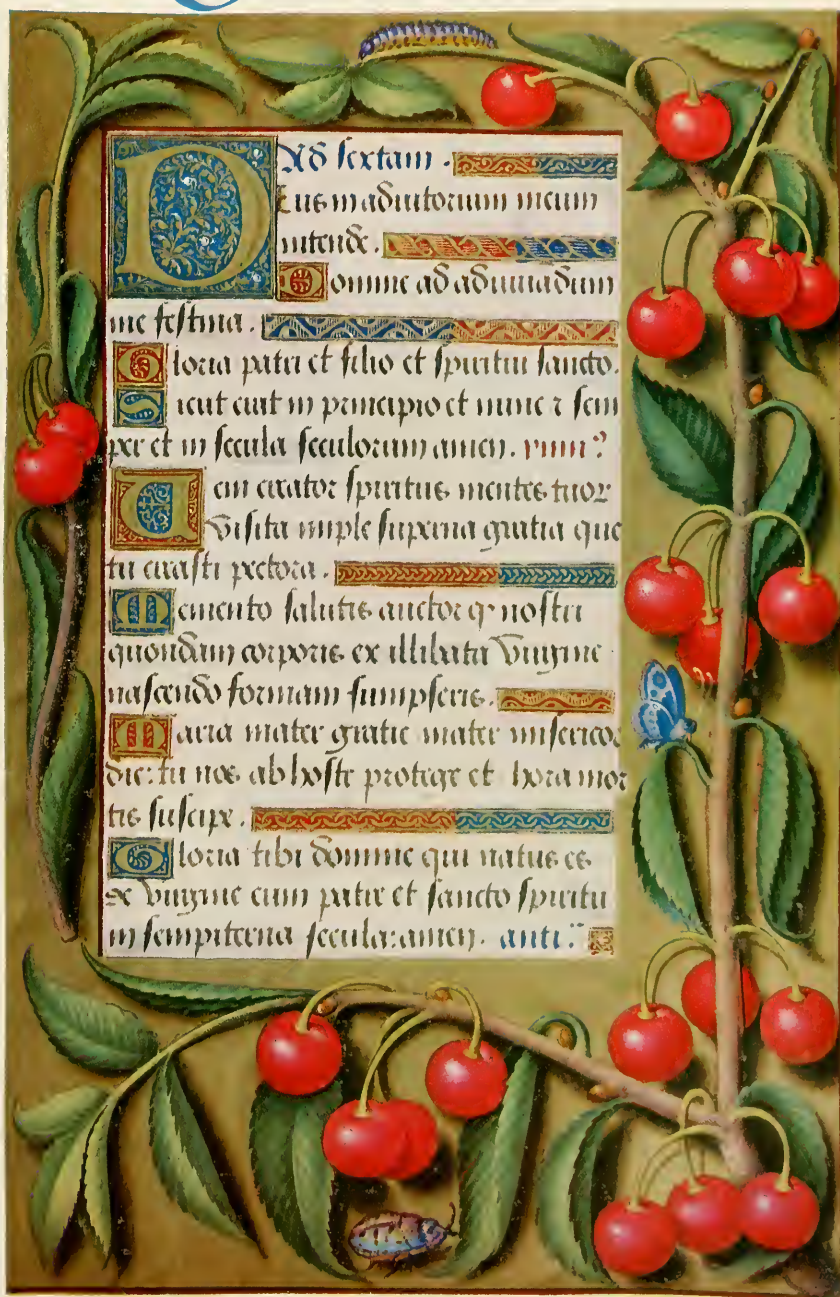 Ad sextam.
Deus in adiutorium meum
intende.
Domine ad adiuuādum
me festina.
Gloria patri et filio et spiritui sancto.
Sicut erat in principio et nunc ⁊ sem
per et in secula seculorum amen. ymn᷒
Veni creator spiritus mentes tuoꝝ
visita imple superna gratia que
tu creasti pectora.
Memento salutis auctor qꝫ nostri
quondam corporis ex illibata virgine
nascendo formam sumpseris.
Maria mater gratie mater misericor
die: tu nos ab hoste protege et hora mor
tis suscipe.
Gloria tibi domine qui natus es
de virgine cum patre et sancto spiritu
in sempiterna secula: amen. anti᷒